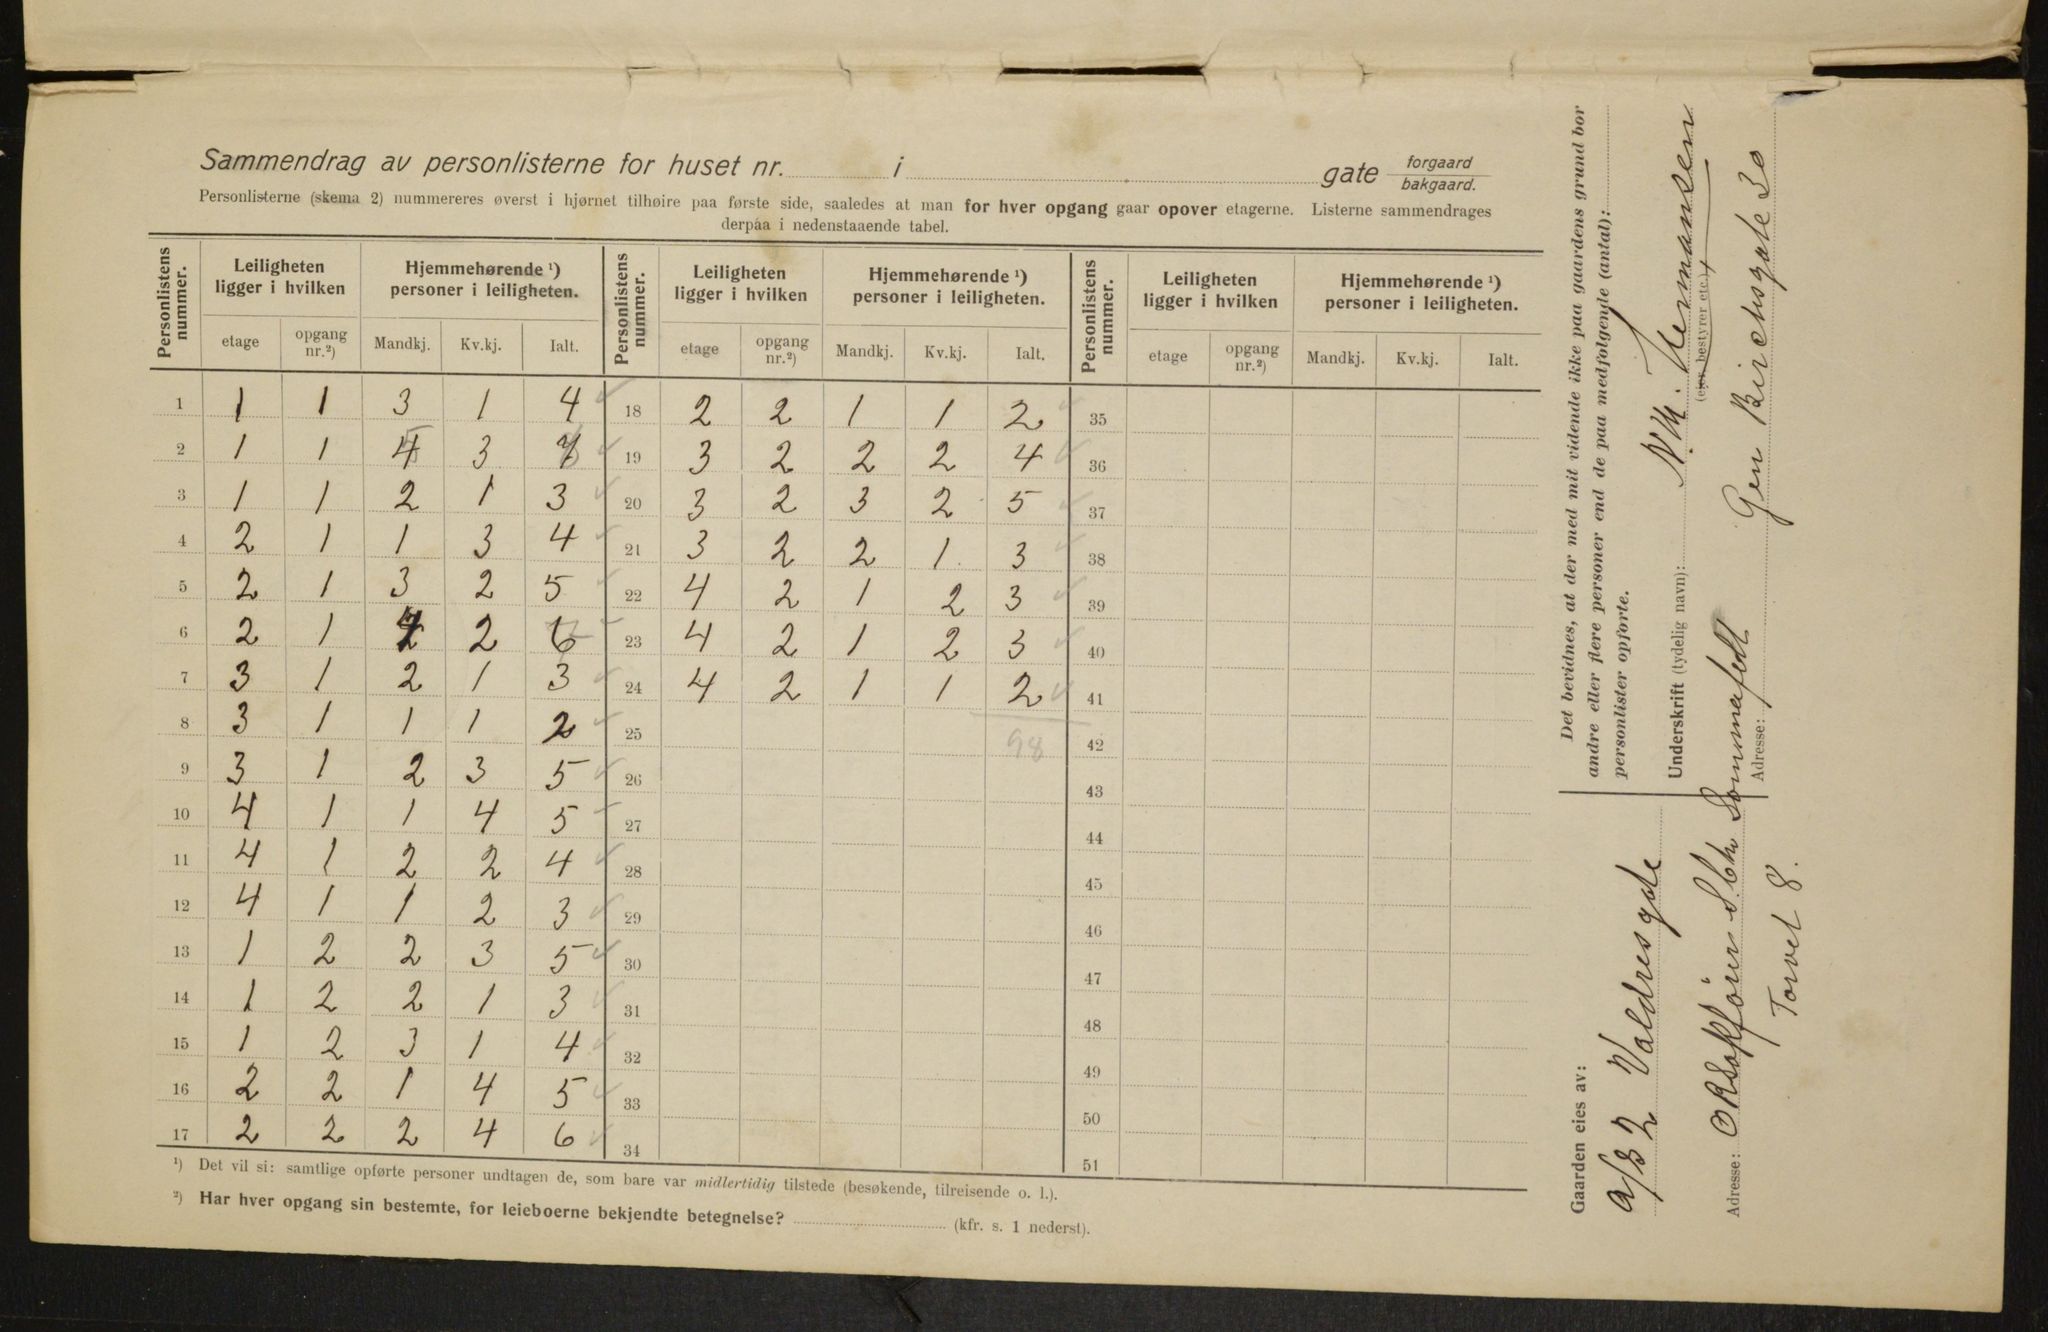 Sammendrag av personlisterne for huset nr. i gate forgaard
bakgaard.
Personlisterne (skema 2) nummereres øverst i hjørnet tilhøire paa første side, saaledes at man for hver opgang gaar opover etagerne. Listerne sammendrages
derpaa i nedenstaaende tabel.
Personlistens nummer. Leiligheten ligger i hvilken Hjemmehørende ¹) personer i leiligheten. Personlistens nummer. Leiligheten ligger i hvilken Hjemmehørende ¹) personer i leiligheten. Personlistens nummer. Leiligheten ligger i hvilken Hjemmehørende ¹) personer i leiligheten.
etage opgang nr.²) Mandkj. Kv.kj. Ialt. etage opgang nr.²) Mandkj. Kv.kj. Ialt. etage opgang nr.²) Mandkj. Kv.kj. Ialt.
1 1 1 3 1 4 18 2 2 1 1 2 35
2 1 1 3 19 3 2 2 2 4 36
3 1 1 2 1 3 20 3 2 3 2 5 37
4 2 1 1 3 4 21 3 2 2 1 3 38
5 2 1 3 2 5 22 4 2 1 2 3 39
6 2 1 4 2 6 23 4 2 1 2 3 40
7 3 1 2 1 3 24 4 2 1 1 2 41
8 3 1 1 1 2 25 98 42
9 3 1 2 3 5 26 43
10 4 1 1 4 5 27 44
11 4 1 2 2 4 28 45
12 4 1 1 2 3 29 46
13 1 2 2 3 5 30 47
14 1 2 2 1 3 31 48
15 1 2 3 1 4 32 49
16 2 2 1 4 5 33 50
17 2 2 2 4 6 34 51
¹) Det vil si: samtlige opførte personer undtagen de, som bare var midlertidig tilstede (besøkende, tilreisende o. l.).
²) Har hver opgang sin bestemte, for leieboerne bekjendte betegnelse? (kfr. s. 1 nederst).
Det bevidnes, at der med mit vidende ikke paa gaardens grund bor
andre eller flere personer end de paa medfølgende (antal):
personlister opførte.
Underskrift (tydelig navn): N. M. Hermansen
(eier, bestyrer etc.)
Adresse: Gen Birchsgate 30
Gaarden eies av:
a/s 2 Valdresgde
Adresse:
Torvet 8.